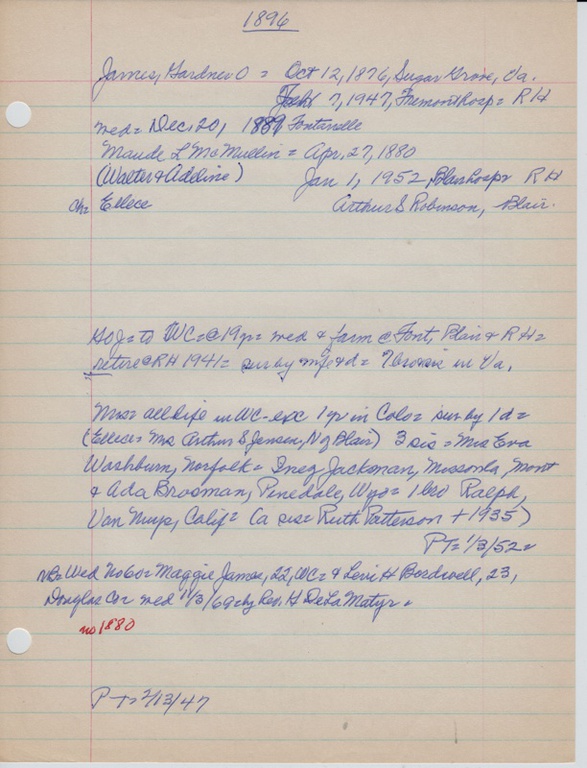 1896
James, Gardner O = Oct 12, 1876, Sugar Grove, Va.
7, 1947, Fremont hosp = R H
med = Dec. 20, 1889 Fontanelle
Maude L McMullin = Apr. 27, 1880
(Walter & Addine) Jan 1, 1952, Blair hosp R H
Ch = Ellece Arthur S Robinson, Blair.
= to WC = @ 19 y = med & farm @ Font, Blair & R H =
retire @ R H 1941 = sur by wife & d = 7 bro & sis in Va.
Mrs = all life in WC - exc 1 yr in Colo = sur by 1 d =
(Ellece = Mrs Arthur S Jensen, N of Blair) 3 sis = Mrs Eva
Washburn, Norfolk = Inez Jackman, Missoula, Mont
& Ada Brosman, Pinedale, Wyo = 1 bro Ralph,
Van Nuys, Calif = (a sis = Ruth Patterson + 1935)
P T = 1/3/52 =
NB = Wed No 60 = Maggie James, 22, WC = & Levi H Bardwell, 23,
Douglas Co = med 1/3/69 = by Rev. H DeLa Matyr =
no 1880
P T = 2/13/47